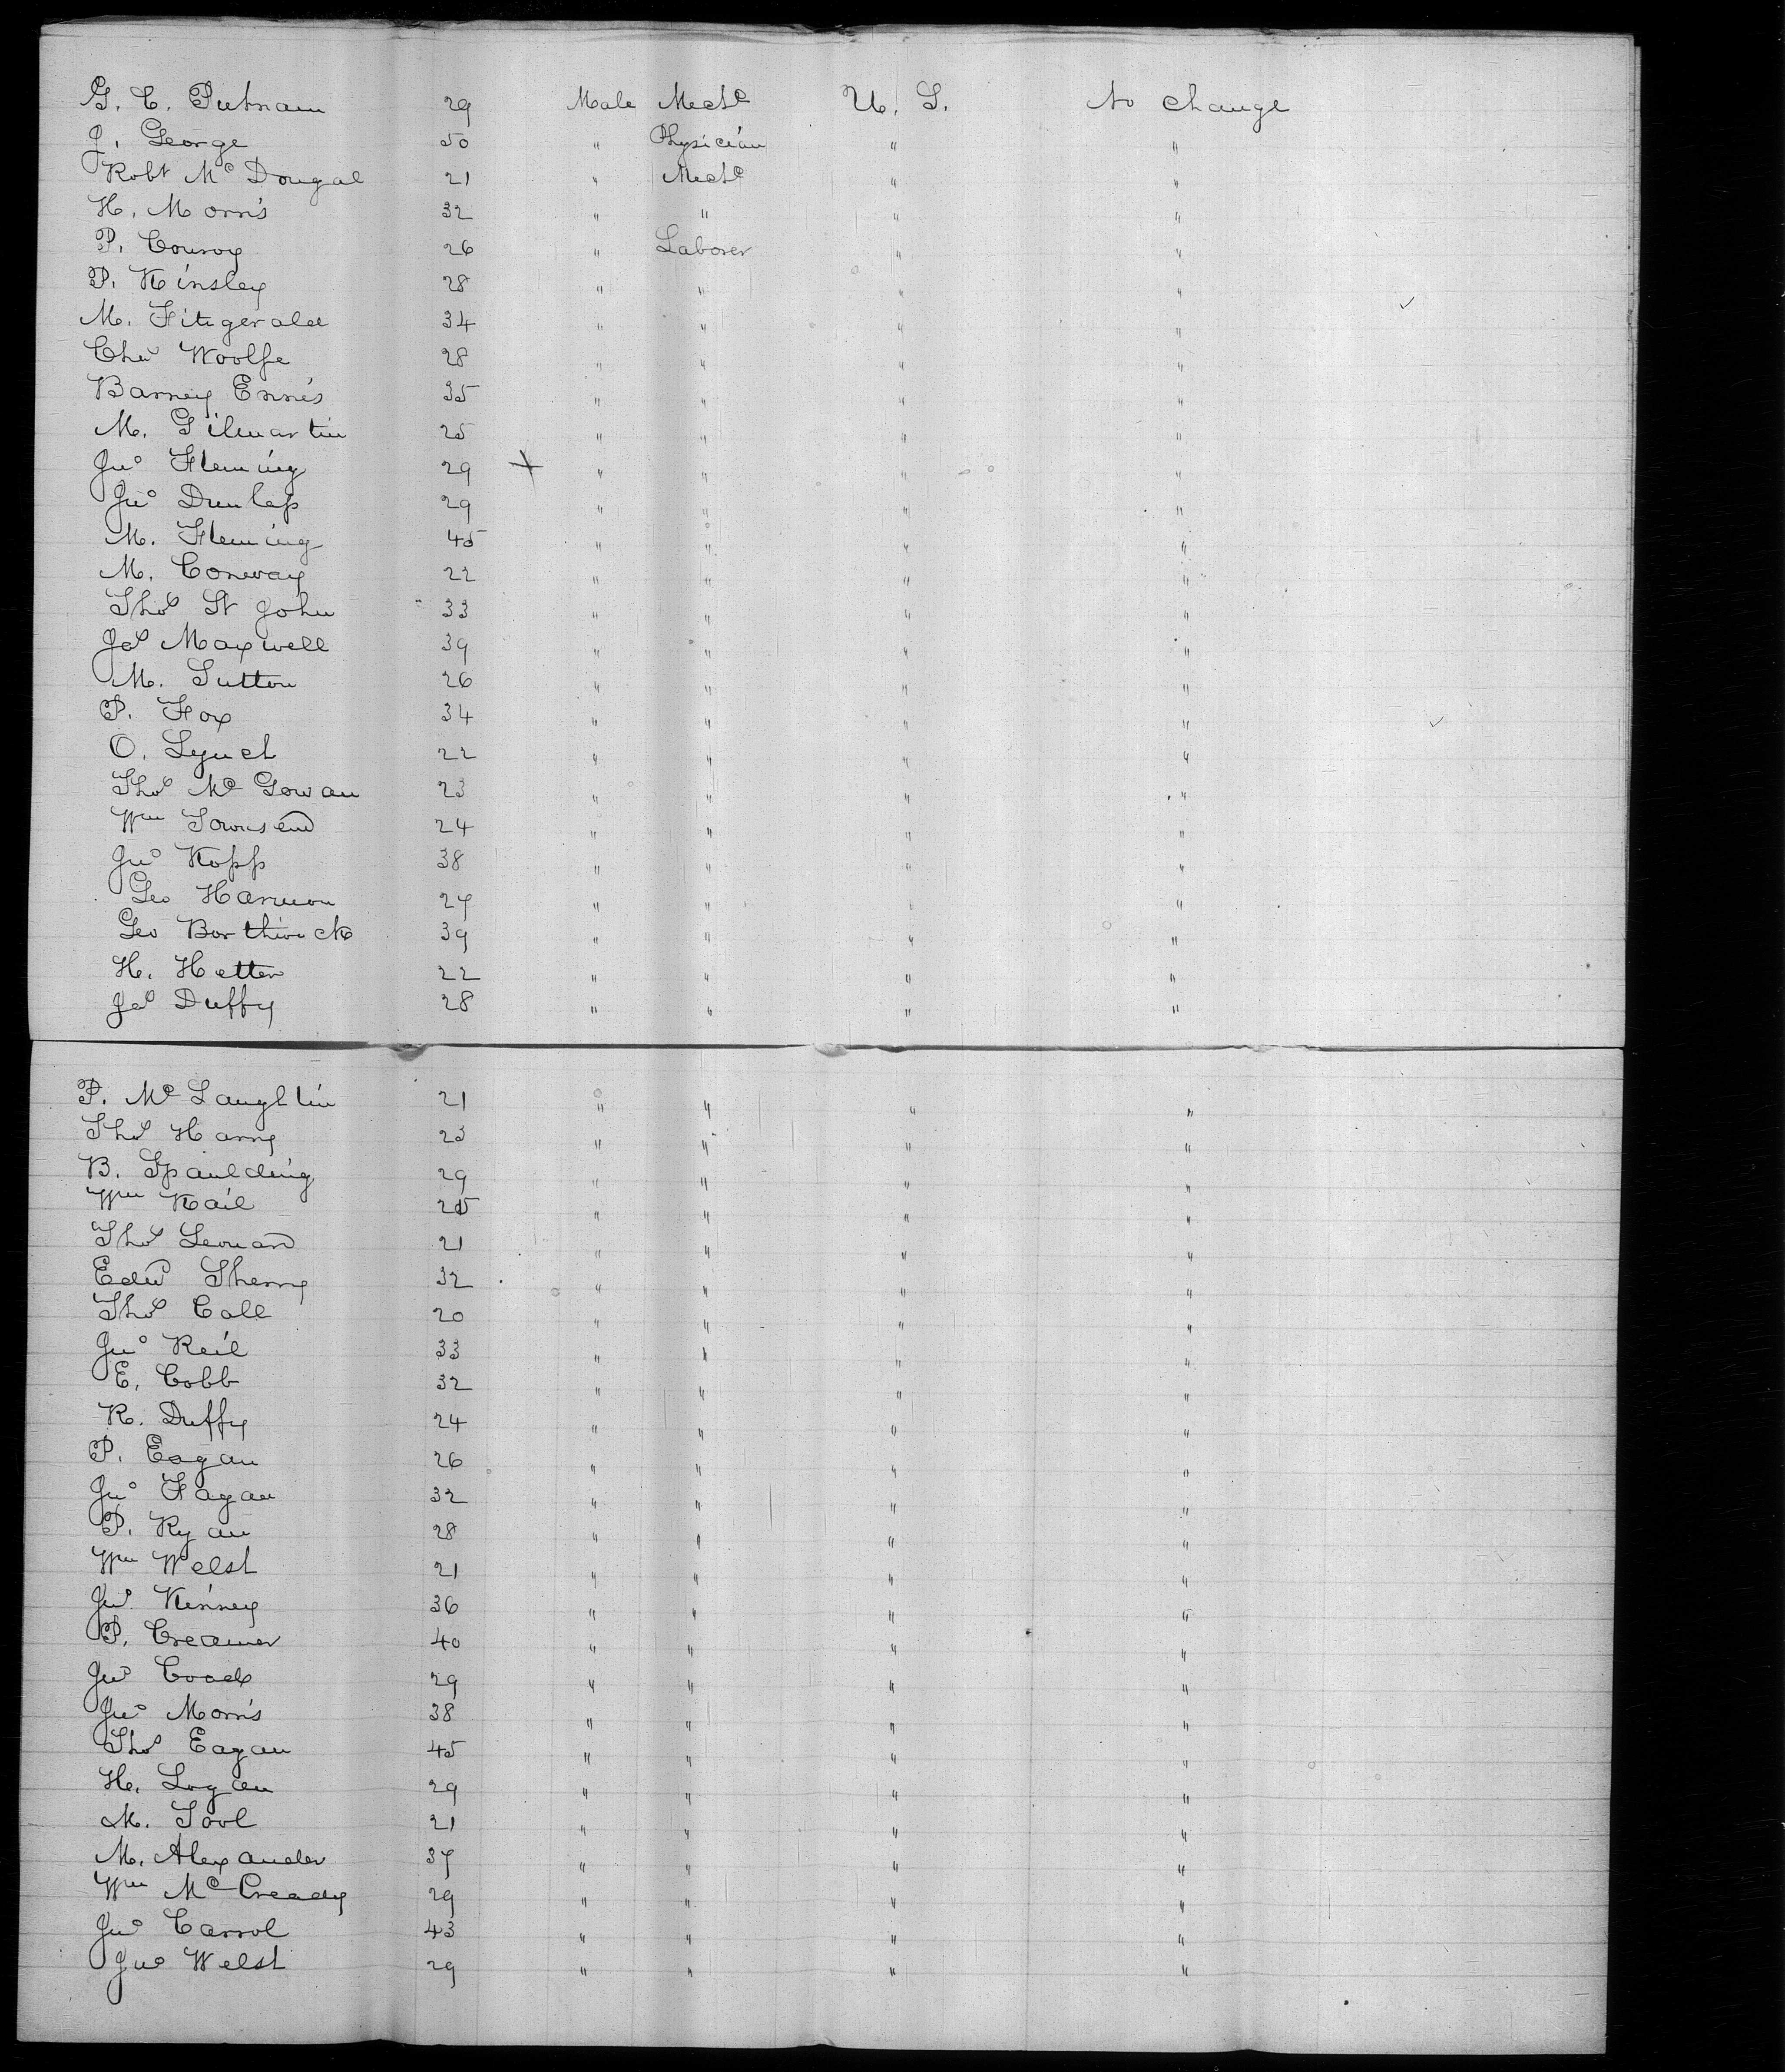 G. C. Putnam 29 Male Mech^c U. S. No change
J. George 50 " Physician " "
Robt Mc Dougal 21 " Mech^c " "
H. Morris 32 " " " "
P. Conroy 26 " Laborer " "
P. Kinsley 28 " " " "
M. Fitzgerald 34 " " " " ✓
Chs Woolfe 28 " " " "
Barney Ennis 35 " " " "
M. Gilmartin 25 " " " "
Jno Fleming 29 + " " " "
Jno Dunlap 29 " " " "
M. Fleming 45 " " " "
M. Conway 22 " " " "
Thos St John 33 " " " "
Jas Maxwell 39 " " " "
M. Sutton 26 " " " "
P. Fox 34 " " " " ✓
O. Lynch 22 " " " "
Thos Mc Gowan 23 " " " "
Wm Townsend 24 " " " "
Jno Kopp 38 " " " "
Geo Harmon 27 " " " "
Geo Borthwick 39 " " " "
H. Hetter 22 " " " "
Jas Duffy 28 " " " "
P. Mc Laughlin 21 " " " "
Thos Harry 23 " " " "
B. Spaulding 29 " " " "
Wm Kail 25 " " " "
Thos Leonard 21 " " " "
Edwd Sherry 32 " " " "
Thos Call 20 " " " "
Jno Reil 33 " " " "
E. Cobb 32 " " " "
R. Duffy 24 " " " "
P. Eagan 26 " " " "
Jno Fagan 32 " " " "
P. Ryan 28 " " " "
Wm Welsh 21 " " " "
Jno Kinney 36 " " " "
P. Creamer 40 " " " "
Jno 29 " " " "
Jno Morris 38 " " " "
Thos Eagan 45 " " " "
H. Logan 29 " " " "
M. Tool 21 " " " "
M. Alexander 37 " " " "
Wm Mc Cready 29 " " " "
Jno Carrol 43 " " " "
Jno Welsh 29 " " " "